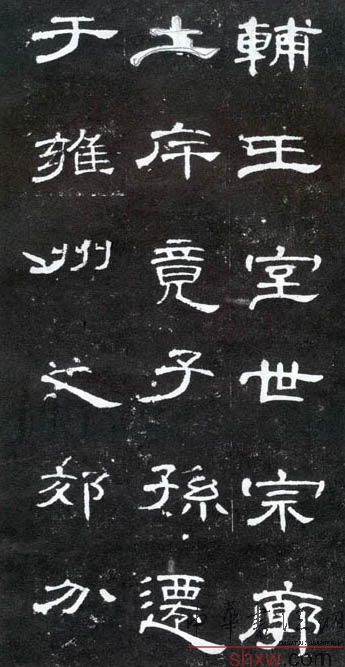 輔王室世宗廓
土斥竟子孫遷
于雍州之郊分
shxw.com